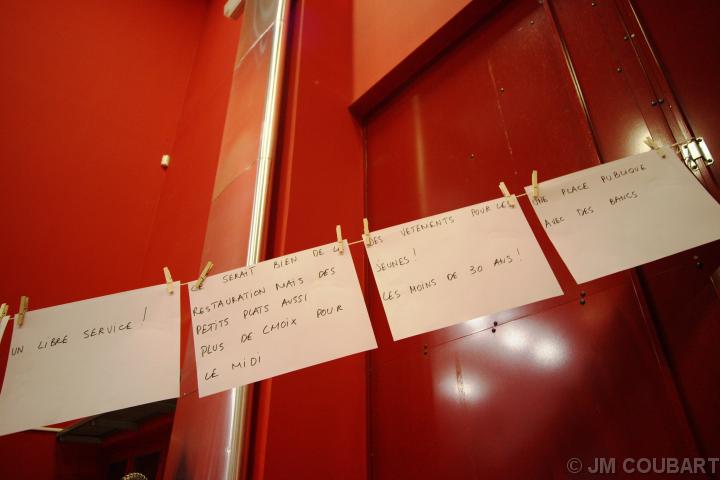 UN LIBRE SERVICE !
SERAIT BIEN DE LA
RESTAURATION MAIS DES
PETITS PLATS AUSSI
PLUS DE CHOIX POUR
LE MIDI
DES VETEMENTS POUR LES
JEUNES !
LES MOINS DE 30 ANS !
UNE PLACE PUBLIQUE
AVEC DES BANCS
© JM COUBART